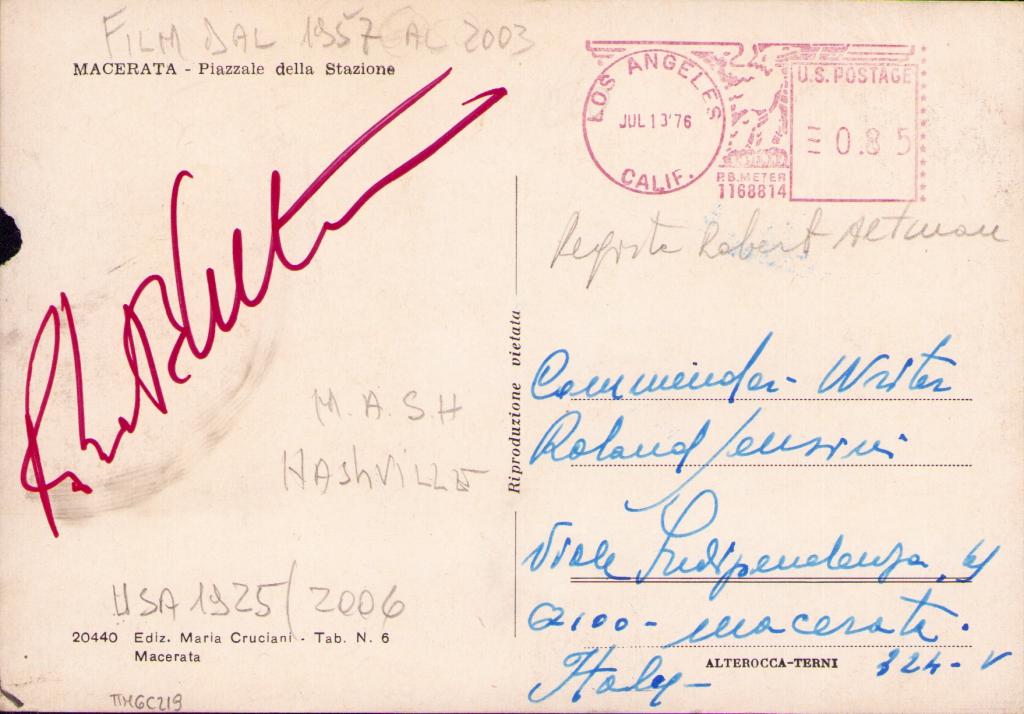 FILM DAL 1957 AL 2003
MACERATA - Piazzale della Stazione
M.A.S.H
NASHVILLE
USA 1925/2006
20440 Ediz. Maria Cruciani - Tab. N. 6
Macerata
TM6C219
Riproduzione vietata
LOS ANGELES
JUL 13 '76
CALIF.
P.B. METER
1168814
U.S. POSTAGE
0.85
Regista Robert Altman
Commendar - Writer
Roland
Viale Indipendenza,
62100 - Macerata.
Italy -
ALTEROCCA-TERNI